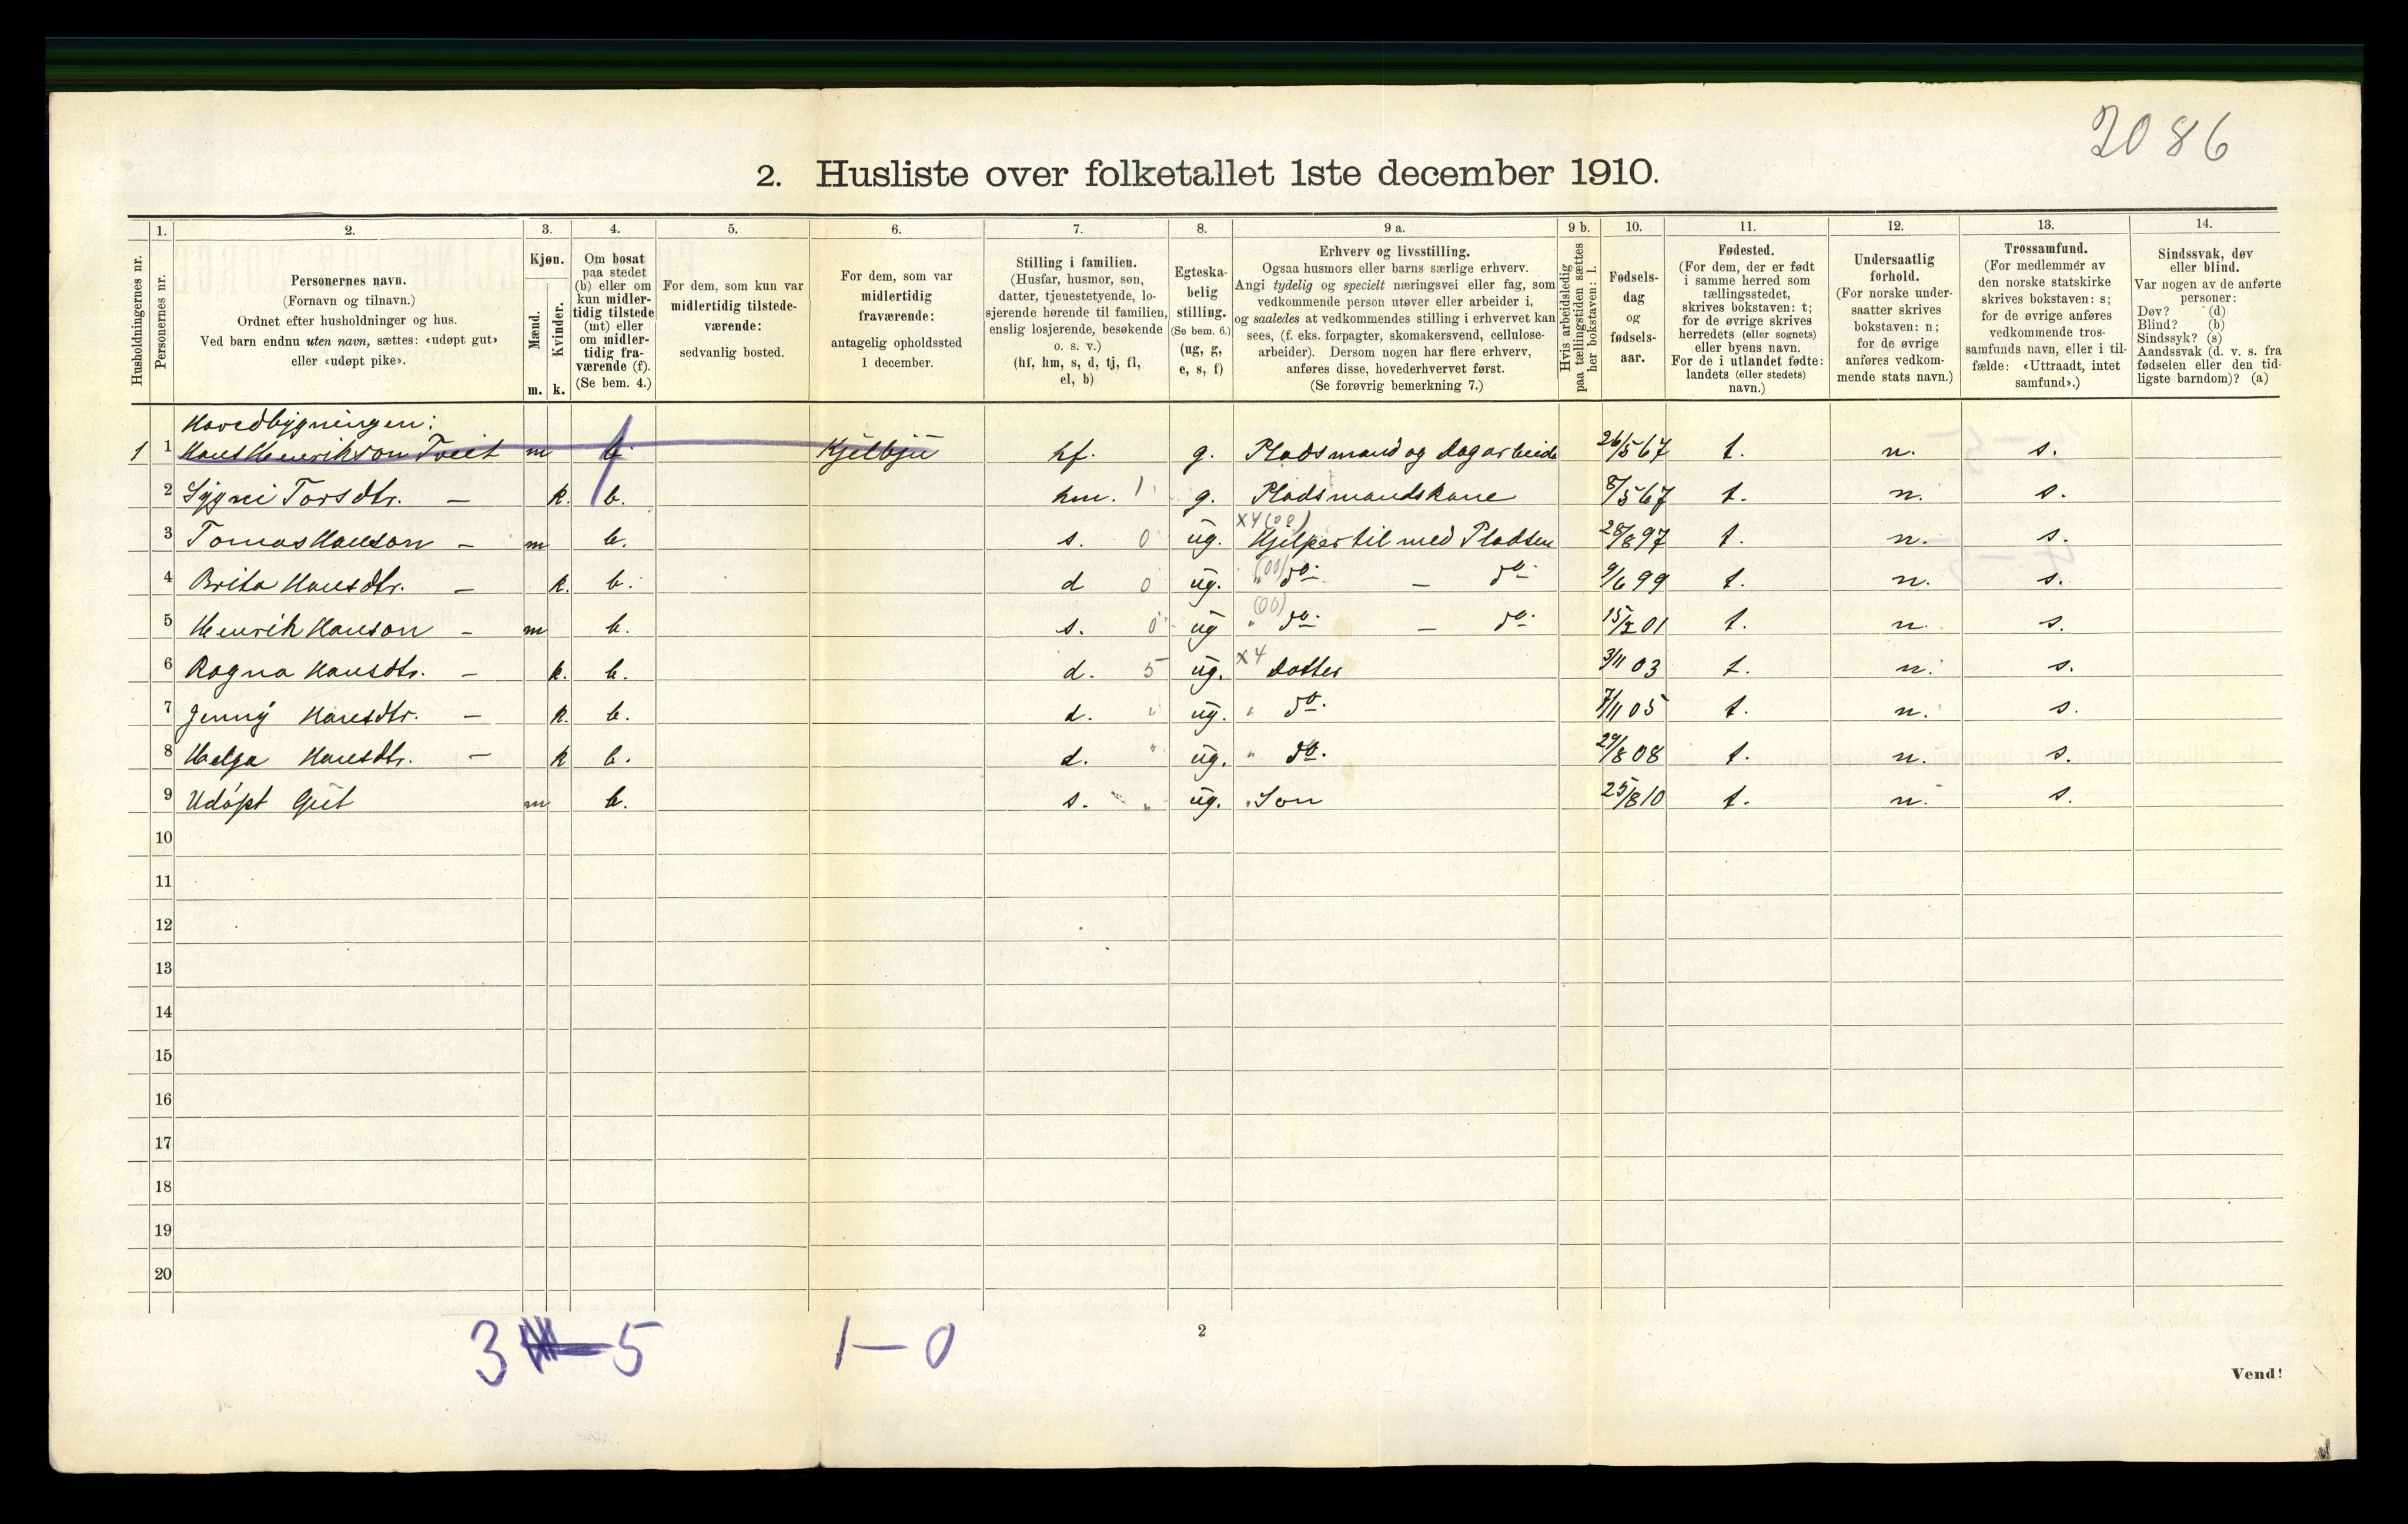 2086
2. Husliste over folketallet 1ste december 1910.
1. 2. 3. 4. 5. 6. 7. 8. 9 a. 9 b. 10. 11. 12. 13. 14.
Husholdningernes nr.
Personernes nr.
Personernes navn.
(Fornavn og tilnavn.)
Ordnet efter husholdninger og hus.
Ved barn endnu uten navn, sættes: «udøpt gut»
eller «udøpt pike».
Kjøn.
Mænd.
Kvinder.
m. k.
Om bosat
paa stedet
(b) eller om
kun midler-
tidig tilstede
(mt) eller
om midler-
tidig fra-
værende (f).
(Se bem. 4.)
For dem, som kun var
midlertidig tilstede-
værende:
sedvanlig bosted.
For dem, som var
midlertidig
fraværende:
antagelig opholdssted
1 december.
Stilling i familien.
(Husfar, husmor, søn,
datter, tjenestetyende, lo-
sjerende hørende til familien,
enslig losjerende, besøkende
o. s. v.)
(hf, hm, s, d, tj, fl,
el, b)
Egteska-
belig
stilling.
(Se bem. 6.)
(ug, g,
e, s, f)
Erhverv og livsstilling.
Ogsaa husmors eller barns særlige erhverv.
Angi tydelig og specielt næringsvei eller fag, som
vedkommende person utøver eller arbeider i,
og saaledes at vedkommendes stilling i erhvervet kan
sees, (f. eks. forpagter, skomakersvend, cellulose-
arbeider). Dersom nogen har flere erhverv,
anføres disse, hovederhvervet først.
(Se forøvrig bemerkning 7.)
Hvis arbeidsledig
paa tællingstiden sættes
her bokstaven: l.
Fødsels-
dag
og
fødsels-
aar.
Fødested.
(For dem, der er født
i samme herred som
tællingsstedet,
skrives bokstaven: t;
for de øvrige skrives
herredets (eller sognets)
eller byens navn.
For de i utlandet fødte:
landets (eller stedets)
navn.)
Undersaatlig
forhold.
(For norske under-
saatter skrives
bokstaven: n;
for de øvrige
anføres vedkom-
mende stats navn.)
Trossamfund.
(For medlemmer av
den norske statskirke
skrives bokstaven: s;
for de øvrige anføres
vedkommende tros-
samfunds navn, eller i til-
fælde: «Uttraadt, intet
samfund».)
Sindssvak, døv
eller blind.
Var nogen av de anførte
personer:
Døv? (d)
Blind? (b)
Sindssyk? (s)
Aandssvak (d. v. s. fra
fødselen eller den tid-
ligste barndom)? (a)
Hovedbygningen:
1 1 Hans Henrikson Tveit m f Kjelbju hf. g. Pladsmand og dagarbeide 26/5 67 t. n. s.
2 Sygni Torsdtr. — k. b. hm. 1 g. Pladsmandskone 8/5 67 t. n. s.
X4 (00)
3 Tomas Hanson — m b. s. 0 ug. Hjelper til med Pladsen 28/8 97 t. n. s.
4 Brita Hansdtr. — k. b. d 0 ug. " (00) do. — do. 9/6 99 t. n. s.
5 Henrik Hanson — m b. s. 0 ug " (00) do. — do. 15/2 01 t. n. s.
6 Ragna Hansdtr. — k. b. d. 5 ug. X4 Datter 3/11 03 t. n. s.
7 Jenny Hansdtr. — k. b. d. " ug. " do. 7/11 05 t. n. s.
8 Helga Hansdtr. — k b. d. " ug. " do. 29/8 08 t. n. s.
9 Udøpt Gut m b. s. " ug. " Son 25/8 10 t. n. s.
10
11
12
13
14
15
16
17
18
19
20
3 — 5 1 — 0
2
Vend!